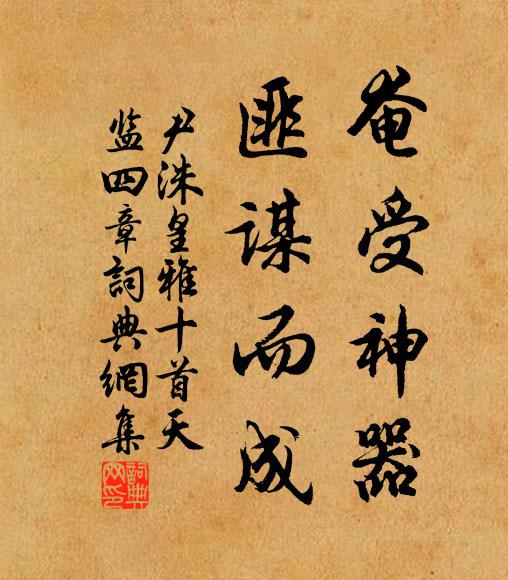 奄受神器
匪谋而成
尹洙皇雅十首天
监四章詞典網集
詞典网印